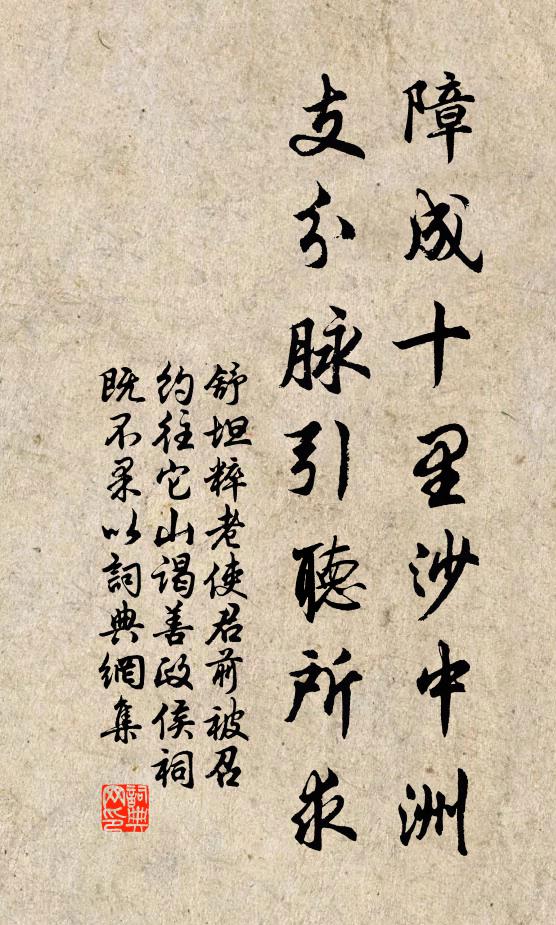 障成十里沙中洲
支分脉引聽所求
舒坦粹老使君前被召
約往它山謁善政侯祠
既不果以詞典網集
詞典
网印